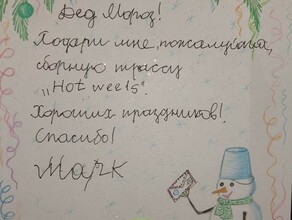 Дед Мороз!
Подари мне, пожалуйста,
сборную трассу
„Hot weels".
Хороших праздников!
Спасибо!
Марк